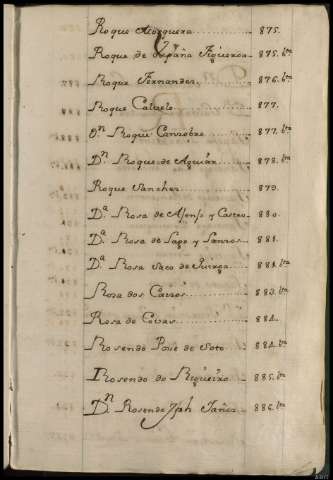 Roque Acorguera ........ 875.
Roque de España Figueroa .. 875. bta
Roque Fernandes ........ 876. bta
Roque Calvelo ........ 877.
Dn. Roque Cansobre ........ 877. bta
Dn. Roque de Aguiar ........ 878. bta
Roque Sanches ........ 879.
Da. Rosa de Alfonso y Castro .. 880.
Da. Rosa de Lago y ........ 881.
Da. Rosa Saco de Quiroga ........ 881. bta
Rosa dos Cairos ........ 883.
Rosa de ........ 884.
Rosendo Pose de Soto ........ 884. bta
Rosendo do Rigueiro ........ 885. bta
Dn. Rosendo Jph Yañez ........ 886. bta